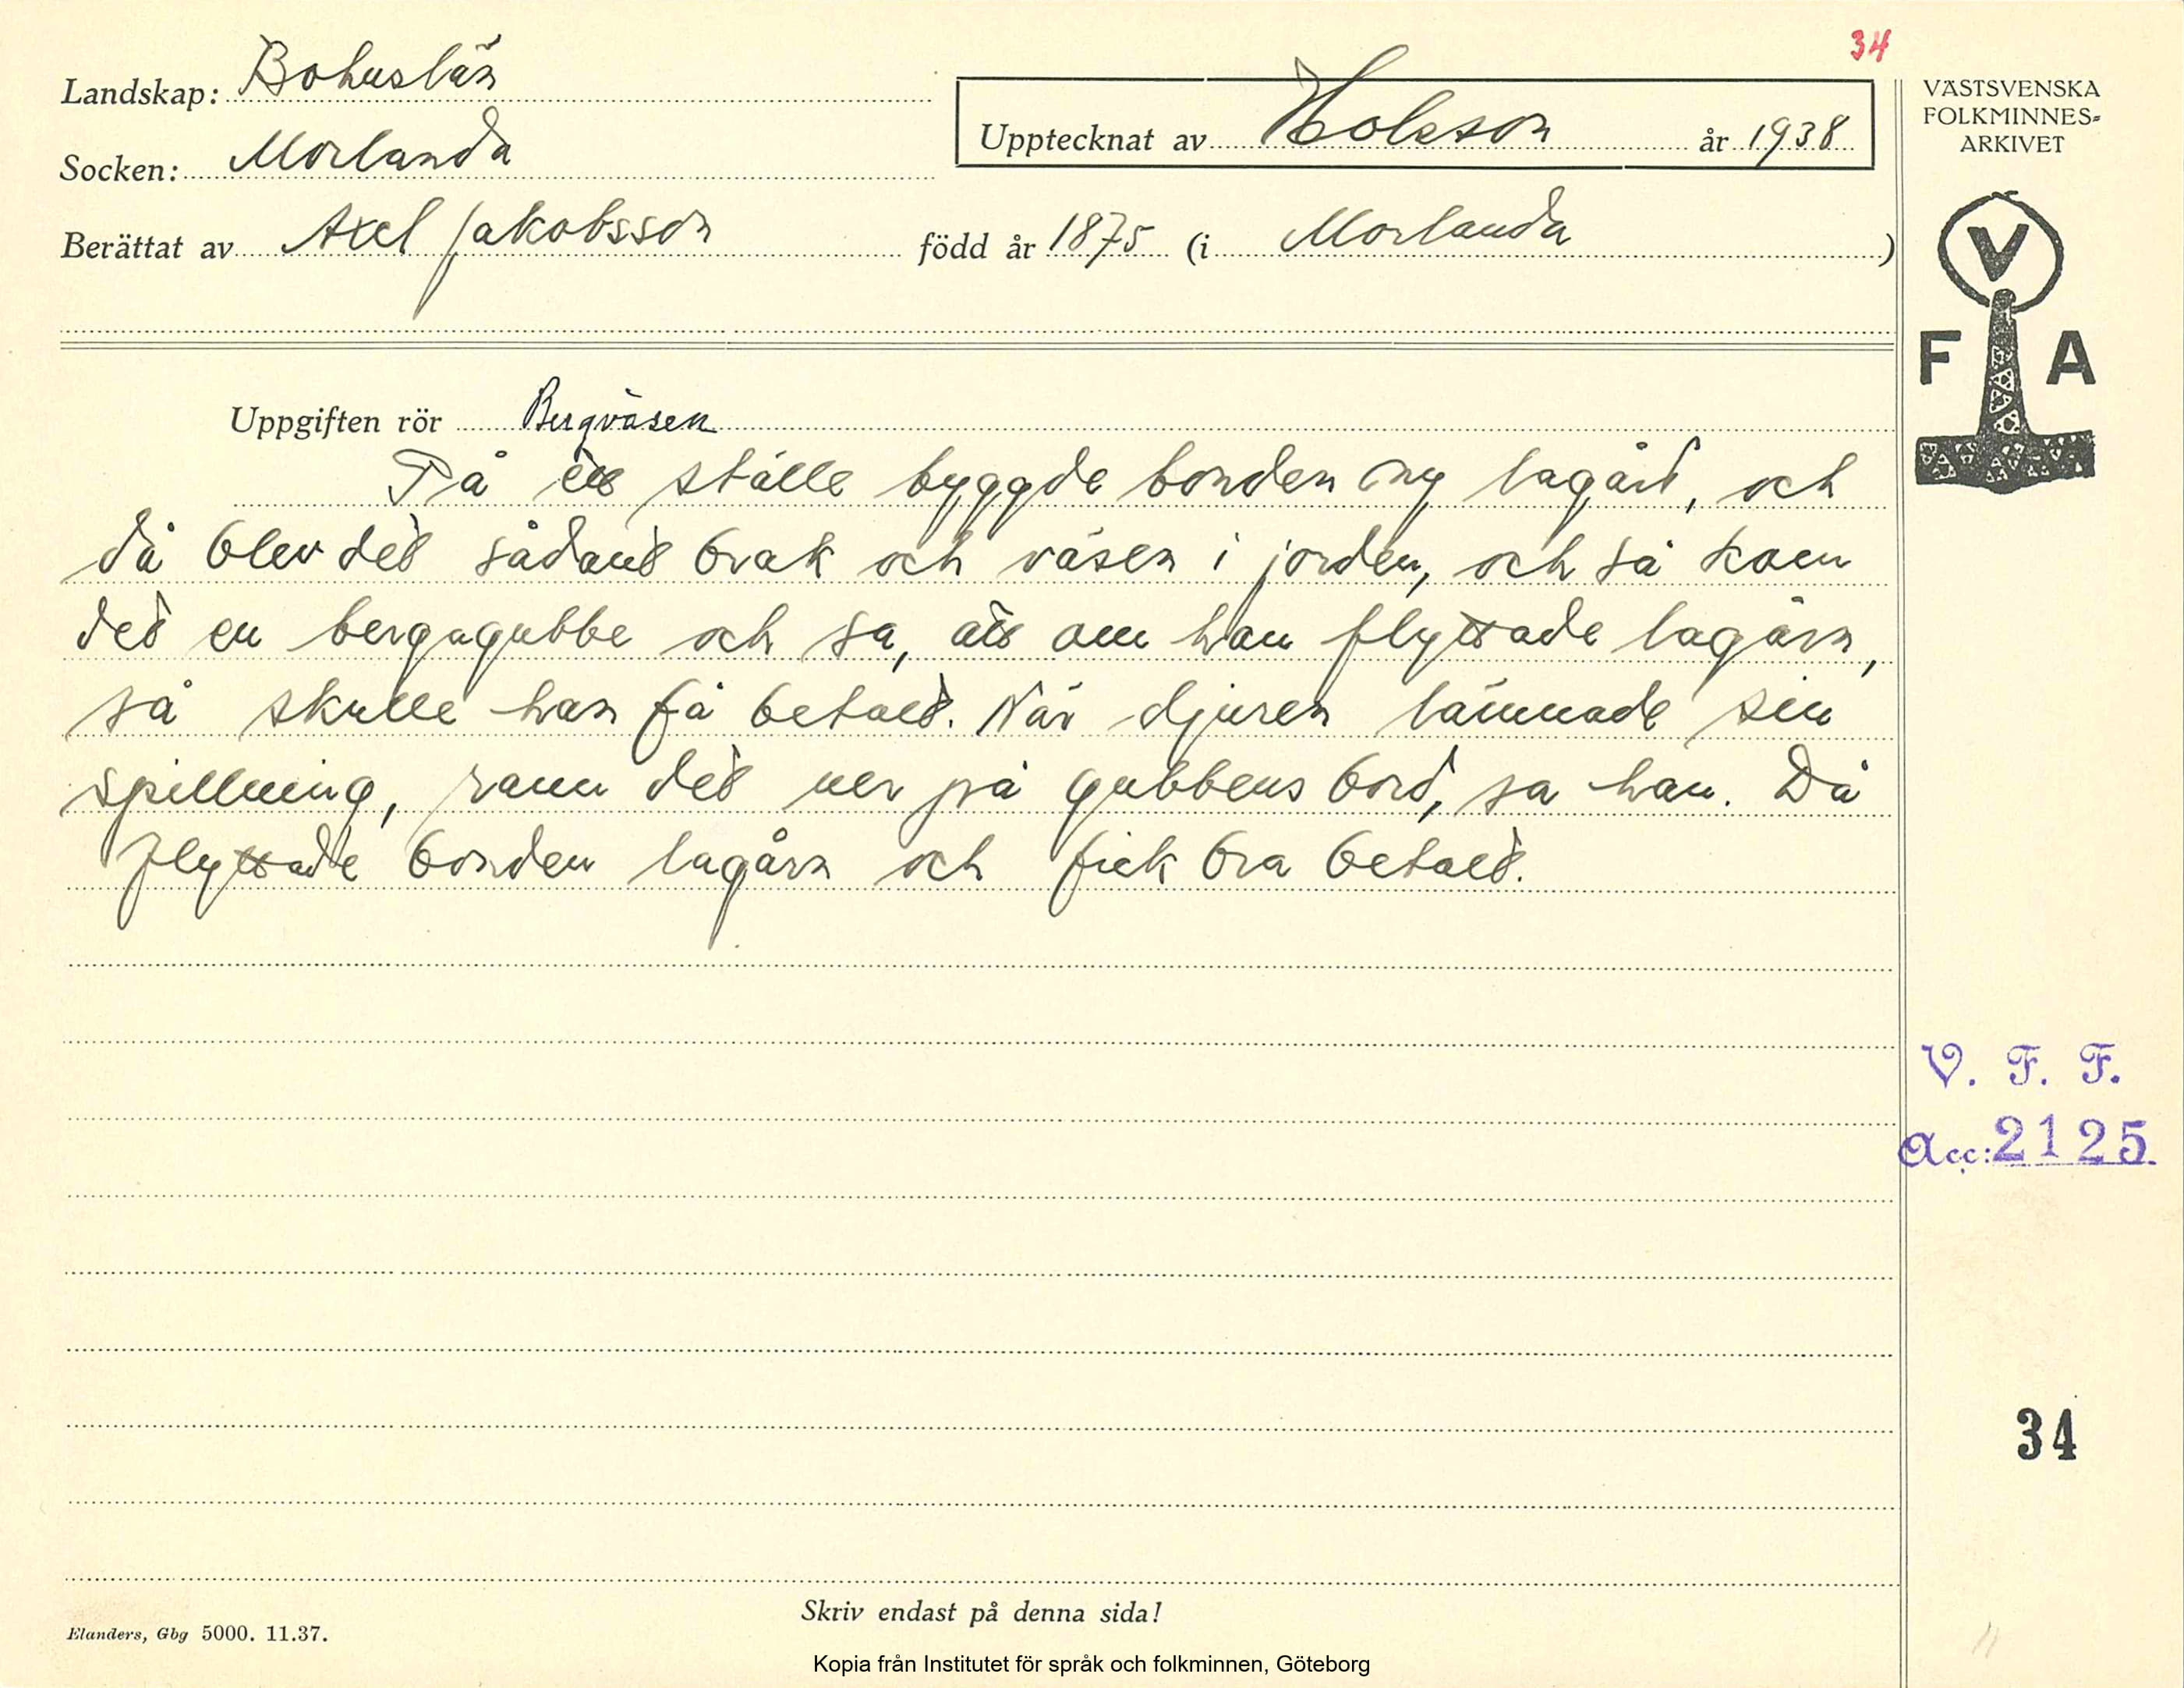 34
Landskap: Bohuslän
Socken: Morlanda
Upptecknat av Holeson år 1938
Berättat av Axel Jakobsson född år 1875 (i Morlanda)
VÄSTSVENSKA
FOLKMINNES=
ARKIVET
V
F A
Uppgiften rör Bergväsen
På ett ställe byggde bonden ny lagård, och
då blev det sådant brak och väsen i jorden, och så kom
det en bergagubbe och sa, att om han flyttade lagårn,
så skulle han få betalt. När djuren lämnade sin
spillning, rann det ner på gubbens bord, sa han. Då
flyttade bonden lagårn och fick bra betalt.
V. F. F.
Acc: 2125
34
Skriv endast på denna sida!
Elanders, Gbg 5000. 11.37.
Kopia från Institutet för språk och folkminnen, Göteborg